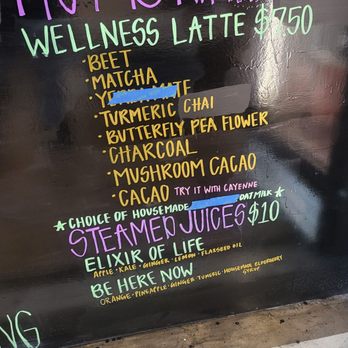 WELLNESS LATTE $7.50
· BEET
· MATCHA
· TURMERIC CHAI
· BUTTERFLY PEA FLOWER
· CHARCOAL
· MUSHROOM CACAO
· CACAO TRY IT WITH CAYENNE
★ CHOICE OF HOUSEMADE OAT MILK ★
STEAMED JUICES $10
ELIXIR OF LIFE
APPLE · KALE · GINGER · LEMON · FLAXSEED OIL
BE HERE NOW
ORANGE · PINEAPPLE · GINGER TUMERIC · HOUSEMADE ELDERBERRY
SYRUP
NG